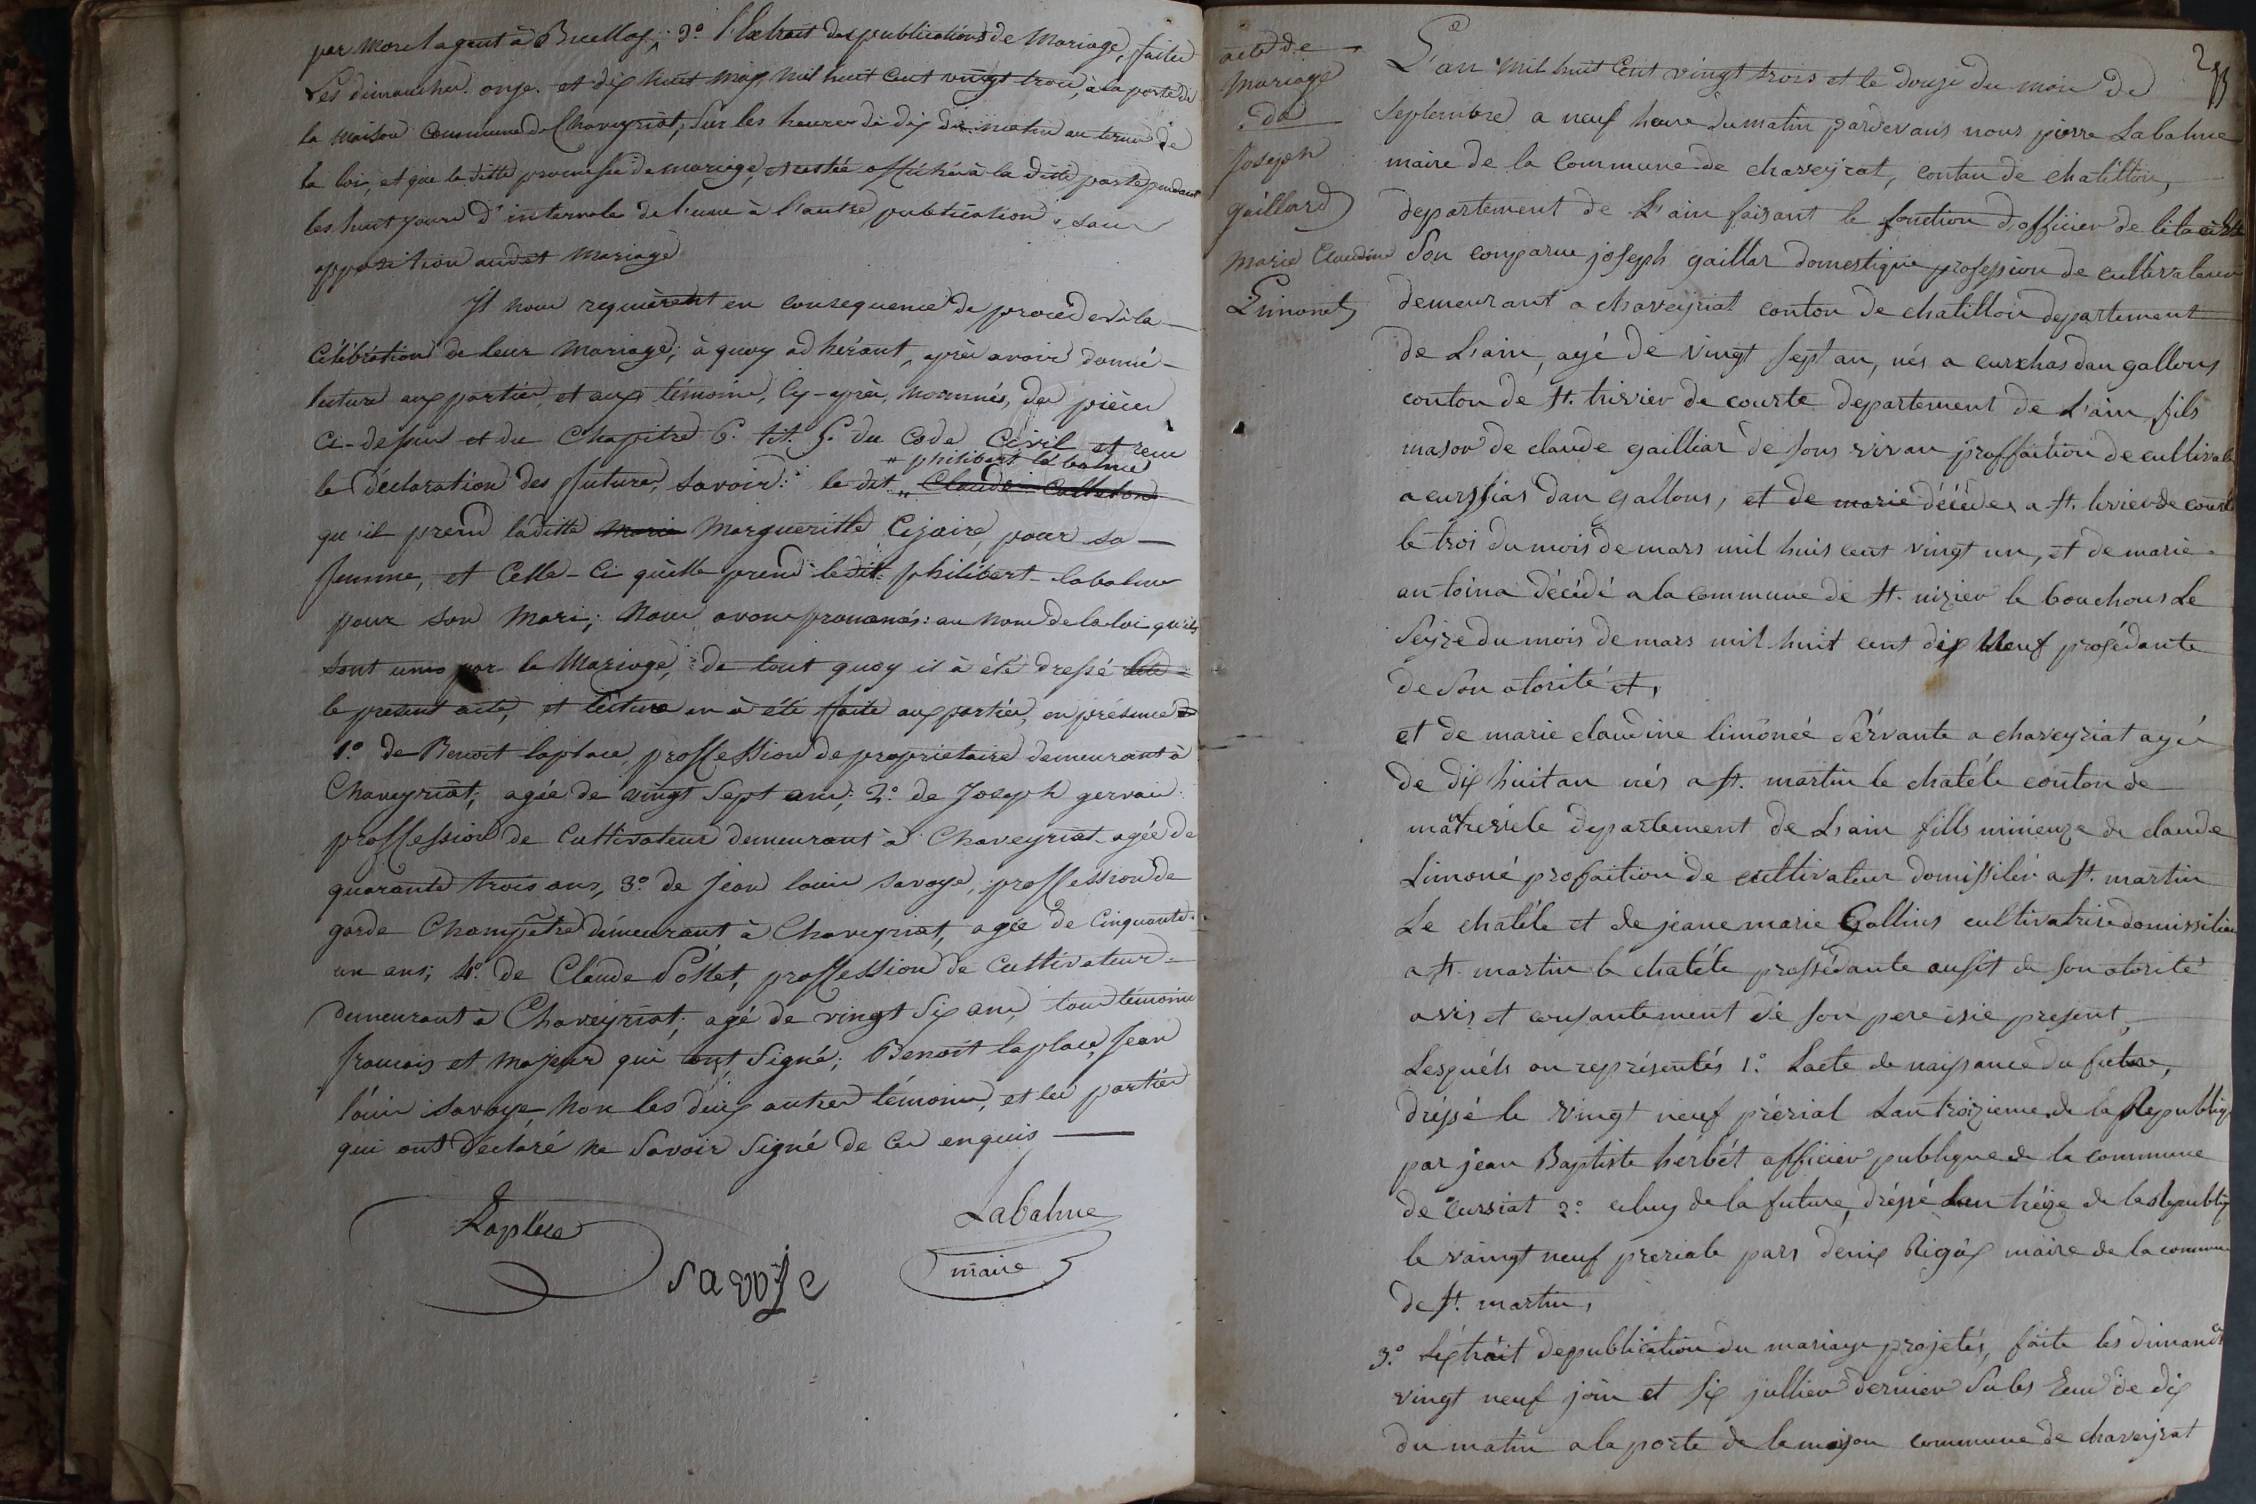 par Morel agent à Buellas; 3.° l'Extrait des publications de Mariage, faites
Les dimanches onze et dix huit may mil huit cent vingt trois, à la porte de
la maison Commune de Chaveyriat, sur les heures de dix du matin au terme de
la loi, et que la ditte promesse de mariage, est restée affichée à la ditte porte pendant
les huit jours d'intervale de l'une à l'autre publication, sans
opposition audit Mariage
Ils nous requièrent en consequence de proceder à la
Célébration de leur Mariage; à quoy adhérant, après avoir donné
lecture aux parties, et aux témoins, Cy-après, nommés, des pièces
Ci-dessus et du Chapitre 6. tit. 5. du Code Civil et reçu
" philibert labalme
la déclaration des futures, savoir: le dit " Claude
qu'il prend laditte Marie Margueritte Cizaire, pour sa
femme, et Celle-Ci qu'elle prend ledit philibert labalme
pour son Mari; Nous avons prononcés: au Nom de la loi qu'ils
sont unis par le Mariage; de tout quoy il à été dressé
le présent acte, et lecture en à été faite aux parties, en présence
1.° de Benoit laplace, proffession de propriétaire demeurant à
Chaveyriat; agée de vingt Sept ans; 2.° de Joseph gervais
proffession de Cultivateur demeurant à Chaveyriat agée de
quarante trois ans, 3.° de Jean louis Savoye, proffession de
garde Champêtre demeurant à Chaveyriat, agée de Cinquante
un ans; 4.° de Claude Pollet, proffession de Cultivateur
demeurant à Chaveyriat; agé de vingt Six ans, tous témoins
francais et majeur qui ont Signé; Benoit laplace, Jean
louis Savoye, Non les deux autres témoins, et les parties
qui ont déclaré ne Savoir Signé de Ce enquis
Laplace
Savoye
Labalme
maire
acte de
Mariage
de
Joseph
gaillard
Marie Claudine
Limonet
L'an mil huit Cent vingt trois et le douze du mois de
Septembre a neuf heure du matin pardevans nous pierre Labalme
maire de la Commune de chaveyrat, conton de chatillon,
departement de L'ain faisant le fonction d'officier de
Son comparue joseph gaillar domestique profession de cultivateur
demeurant a chaveyriat conton de chatillon departement
de L'ain, agé de vingt sept an, nés a dan gallons
conton de st. trivier de courte departement de L'ain fils
mason de claude gailliar de sons vivan proffaition de
a dan gallons, et de marie décédes a st. de
le trois du mois de mars mil huis cent vingt un, et de marie
antoina décédé a la commune de st. nizier le bouchous Le
Seize du mois de mars mil huit cent dix Neuf prosédante
de Son atorité et,
et de marie claudine limônéé Sérvante a chaveyriat agé
de dix huit an nés a st. martin le chatéle conton de
departement de Lain fills mineuze de claude
Limoné profaition de cultivateur domissilié a st. martin
Le chatéle et de jeane marie Gallins cultivatrise
a st. martin le chatéle prossédante ausit de son atorité
avis et consantement dé son pere isie present,
Lesquéls on représentés 1.° Lacte de naissance du future,
dréssé le vingt neuf prérial Lan troizieme de la
par jean Baptiste hérbét officier publique de la commune
de Curssiat 2.° celuy de la future, dréssé Lan tréze de la
le vaingt neuf preriale pars denis Rigôx maire de la
de st. martin,
3.° Lextrait depublication du mariage projetés, faite les
vingt neuf join et six jullier dernier de dix
du matin a la porte de la maison commune de chaveyrat